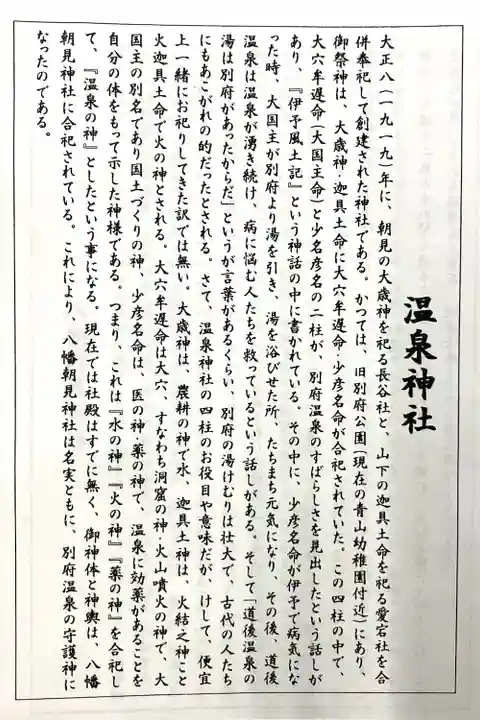 温泉神社
大正八(一九一九)年に、朝見の大歳神を祀る長谷社と、山下の迦具土命を祀る愛宕社を合
併奉祀して創建された神社である。かつては、旧別府公園(現在の青山幼稚園付近)にあり、
御祭神は、大歳神・迦具土命に大穴牟遅命・少彦名命が合祀されていた。この四柱の中で、
大穴牟遅命(大国主命)と少名彦名の二柱が、別府温泉のすばらしさを見出したという話しが
あり、『伊予風土記』という神話の中に書かれている。その中に、少彦名命が伊予で病気にな
った時、大国主が別府より湯を引き、湯を浴びせた所、たちまち元気になり、その後、道後
温泉は温泉が湧き続け、病に悩む人たちを救っているという話しがある。そして、「道後温泉の
湯は別府があったからだ」というが言葉があるくらい、別府の湯けむりは壮大で、古代の人たち
にもあこがれの的だったとされる。さて、温泉神社の四柱のお役目や意味だが、けして、便宜
上一緒にお祀りしてきた訳では無い。大歳神は、農耕の神で水、迦具土神は、火結之神こと
火迦具土命で火の神とされる。大穴牟遅命は大穴、すなわち洞窟の神・火山噴火の神で、大
国主の別名であり国土づくりの神、少彦名命は、医の神・薬の神で、温泉に効薬があることを
自分の体をもって示した神様である。つまり、これは『水の神』『火の神』『薬の神』を合祀し
て、『温泉の神』としたという事になる。現在では社殿はすでに無く、御神体と神輿は、八幡
朝見神社に合祀されている。これにより、八幡朝見神社は名実ともに、別府温泉の守護神に
なったのである。